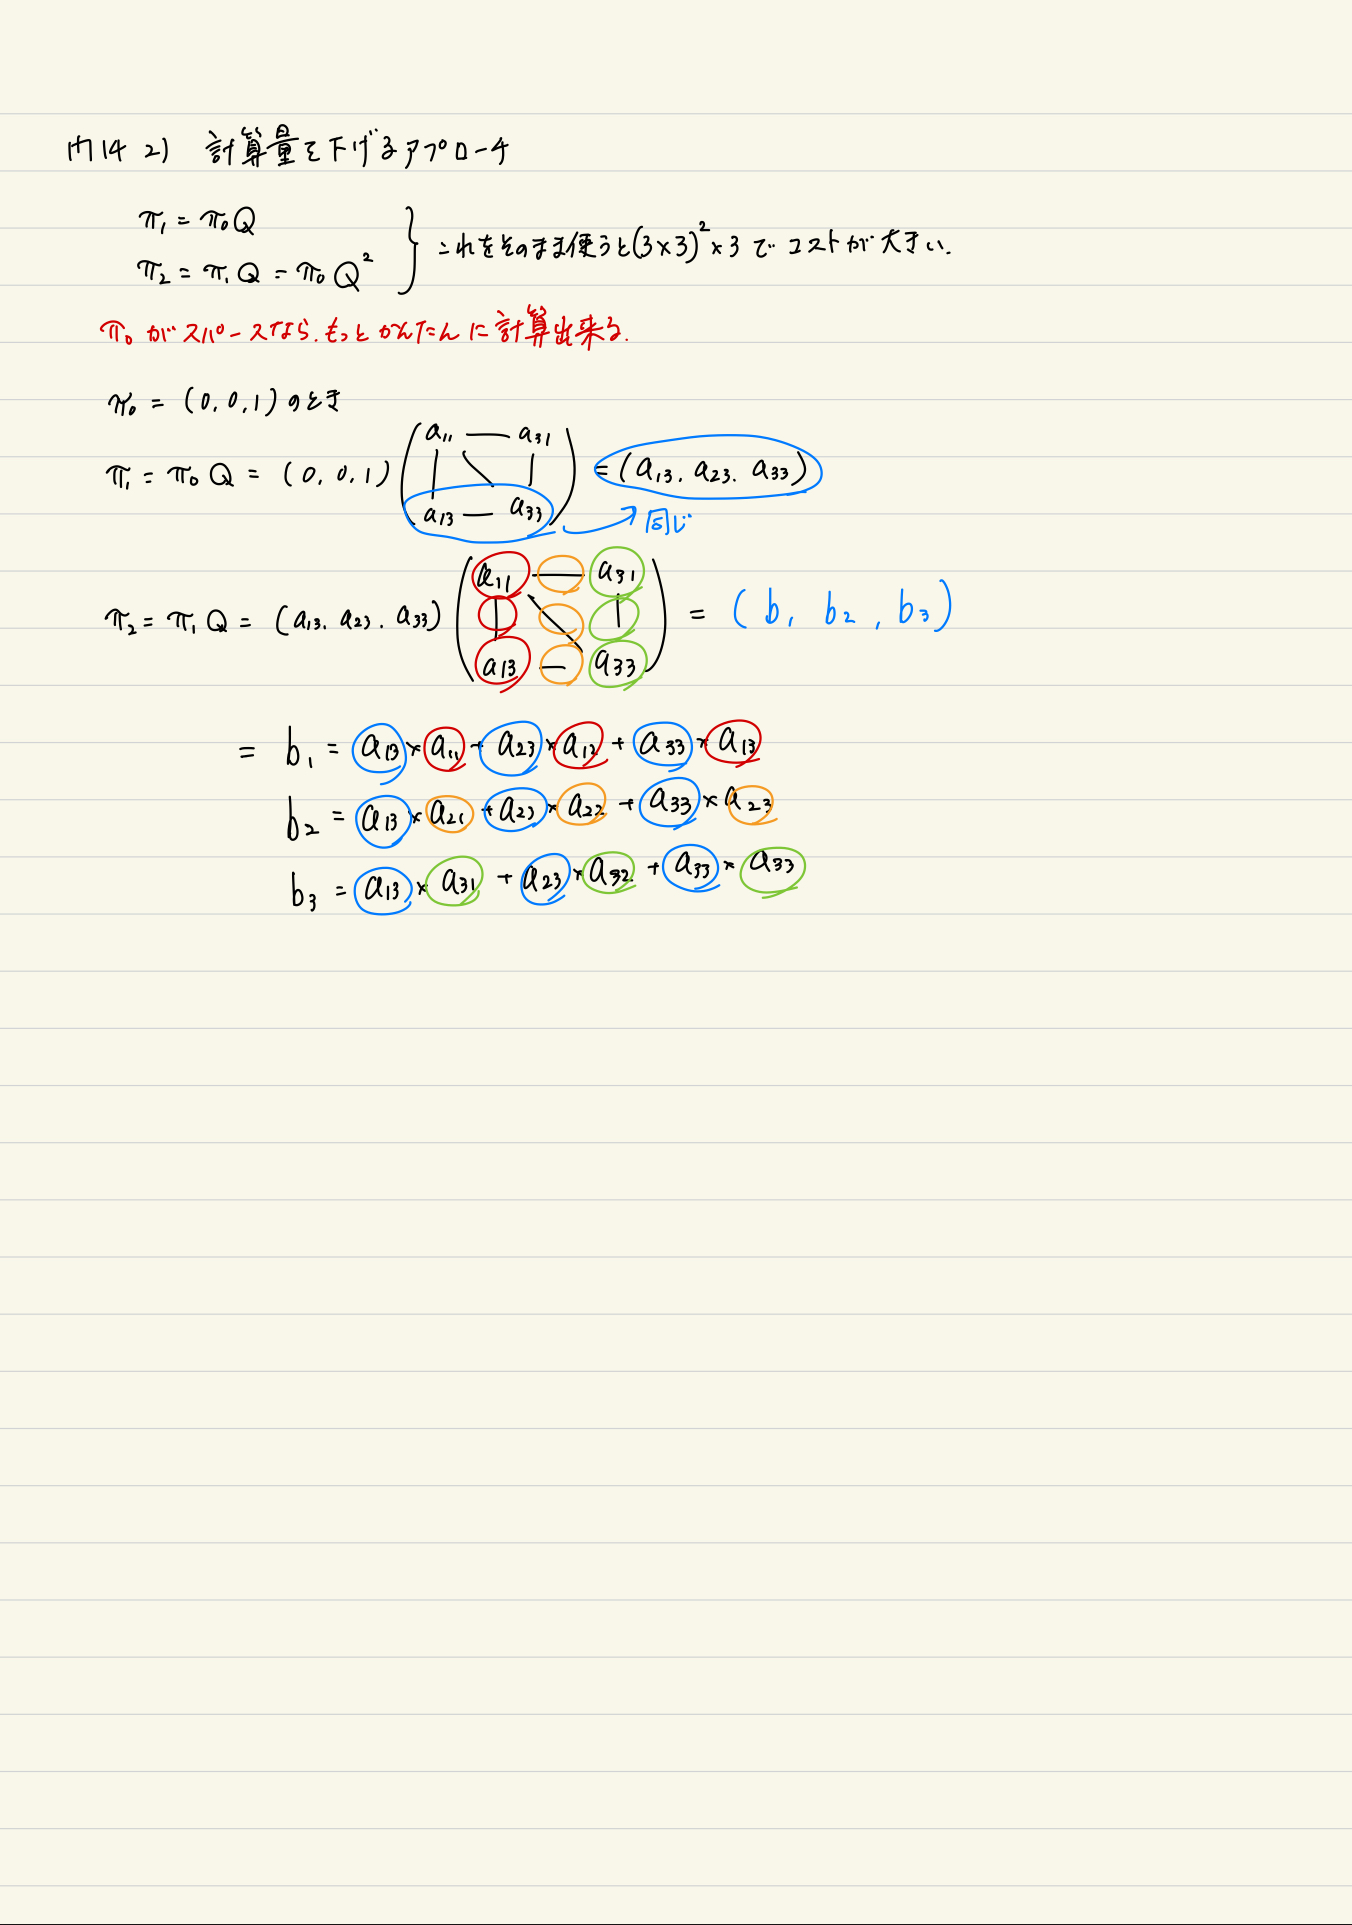 内14 2) 計算量を下げるアプローチ
π₁ = π₀Q
π₂ = π₁Q = π₀Q²
これをそのまま使うと(3×3)²×3 で コストが大きい.
π₀がスパースなら.もっとかんたんに計算出来る.
π₀ = (0,0,1)のとき
π₁ = π₀Q = (0,0,1) (a₁₁ — a₃₁
a₁₃ — a₃₃) = (a₁₃, a₂₃. a₃₃)
同じ
π₂ = π₁Q = (a₁₃, a₂₃. a₃₃) (a₁₁ — a₃₁
a₁₃ — a₃₃) = (b₁ b₂, b₃)
= b₁ = a₁₃×a₁₁ + a₂₃×a₁₂ + a₃₃×a₁₃
b₂ = a₁₃×a₂₁ + a₂₃×a₂₂ + a₃₃×a₂₃
b₃ = a₁₃×a₃₁ + a₂₃×a₃₂ + a₃₃×a₃₃